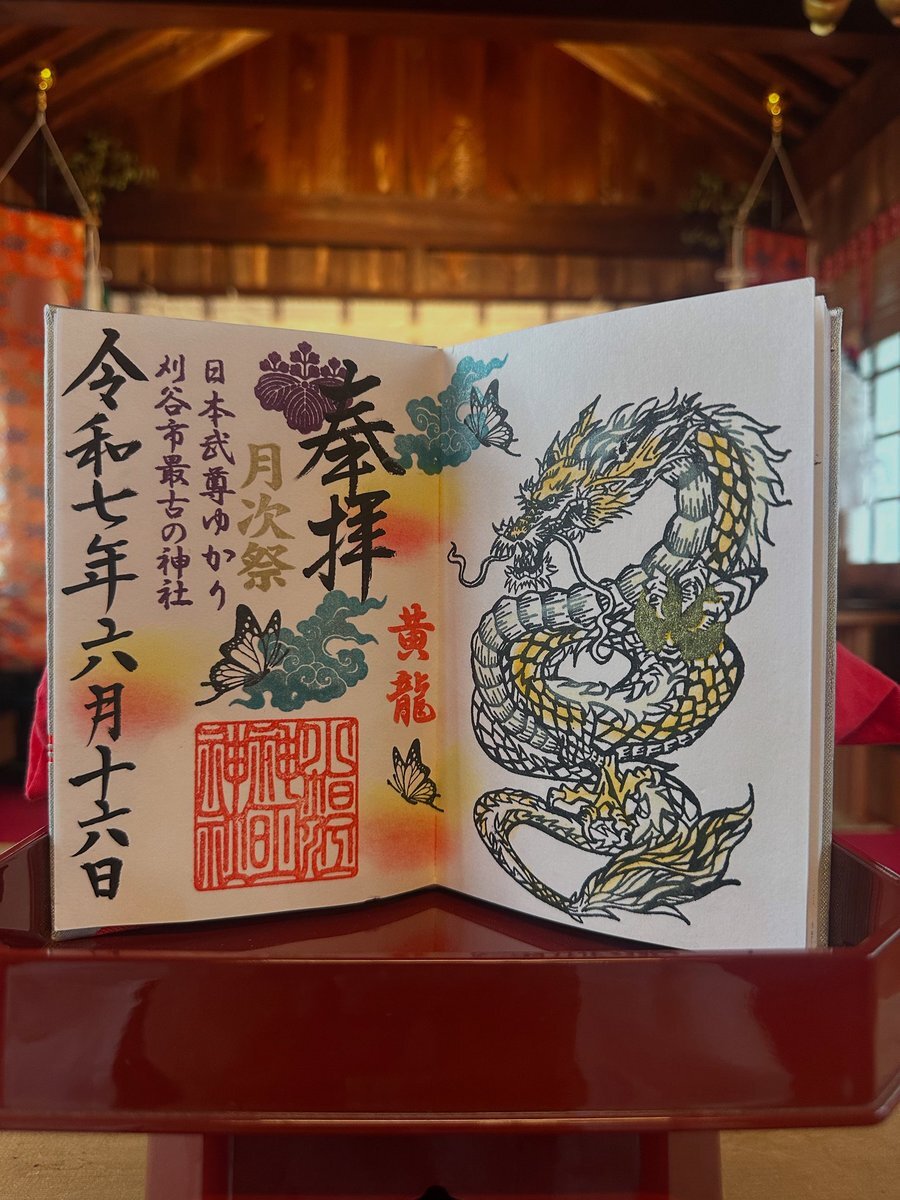 奉拝
黄龍
月次祭
日本武尊ゆかり
刈谷市最古の神社
小垣江
神明
神社
令和七年六月十六日